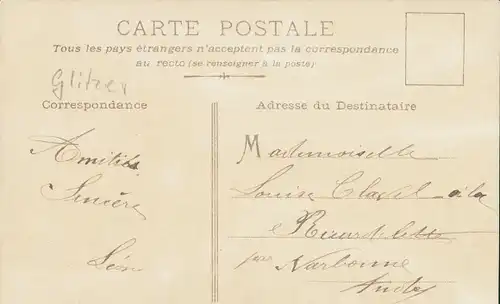 CARTE POSTALE
Tous les pays étrangers n'acceptent pas la correspondance
au recto (se renseigner à la poste)
Glitzer
Correspondance
Amitiés
Sincère
Léon
Adresse du Destinataire
Mademoiselle
Louise Clavel à la
par Narbonne
Aude